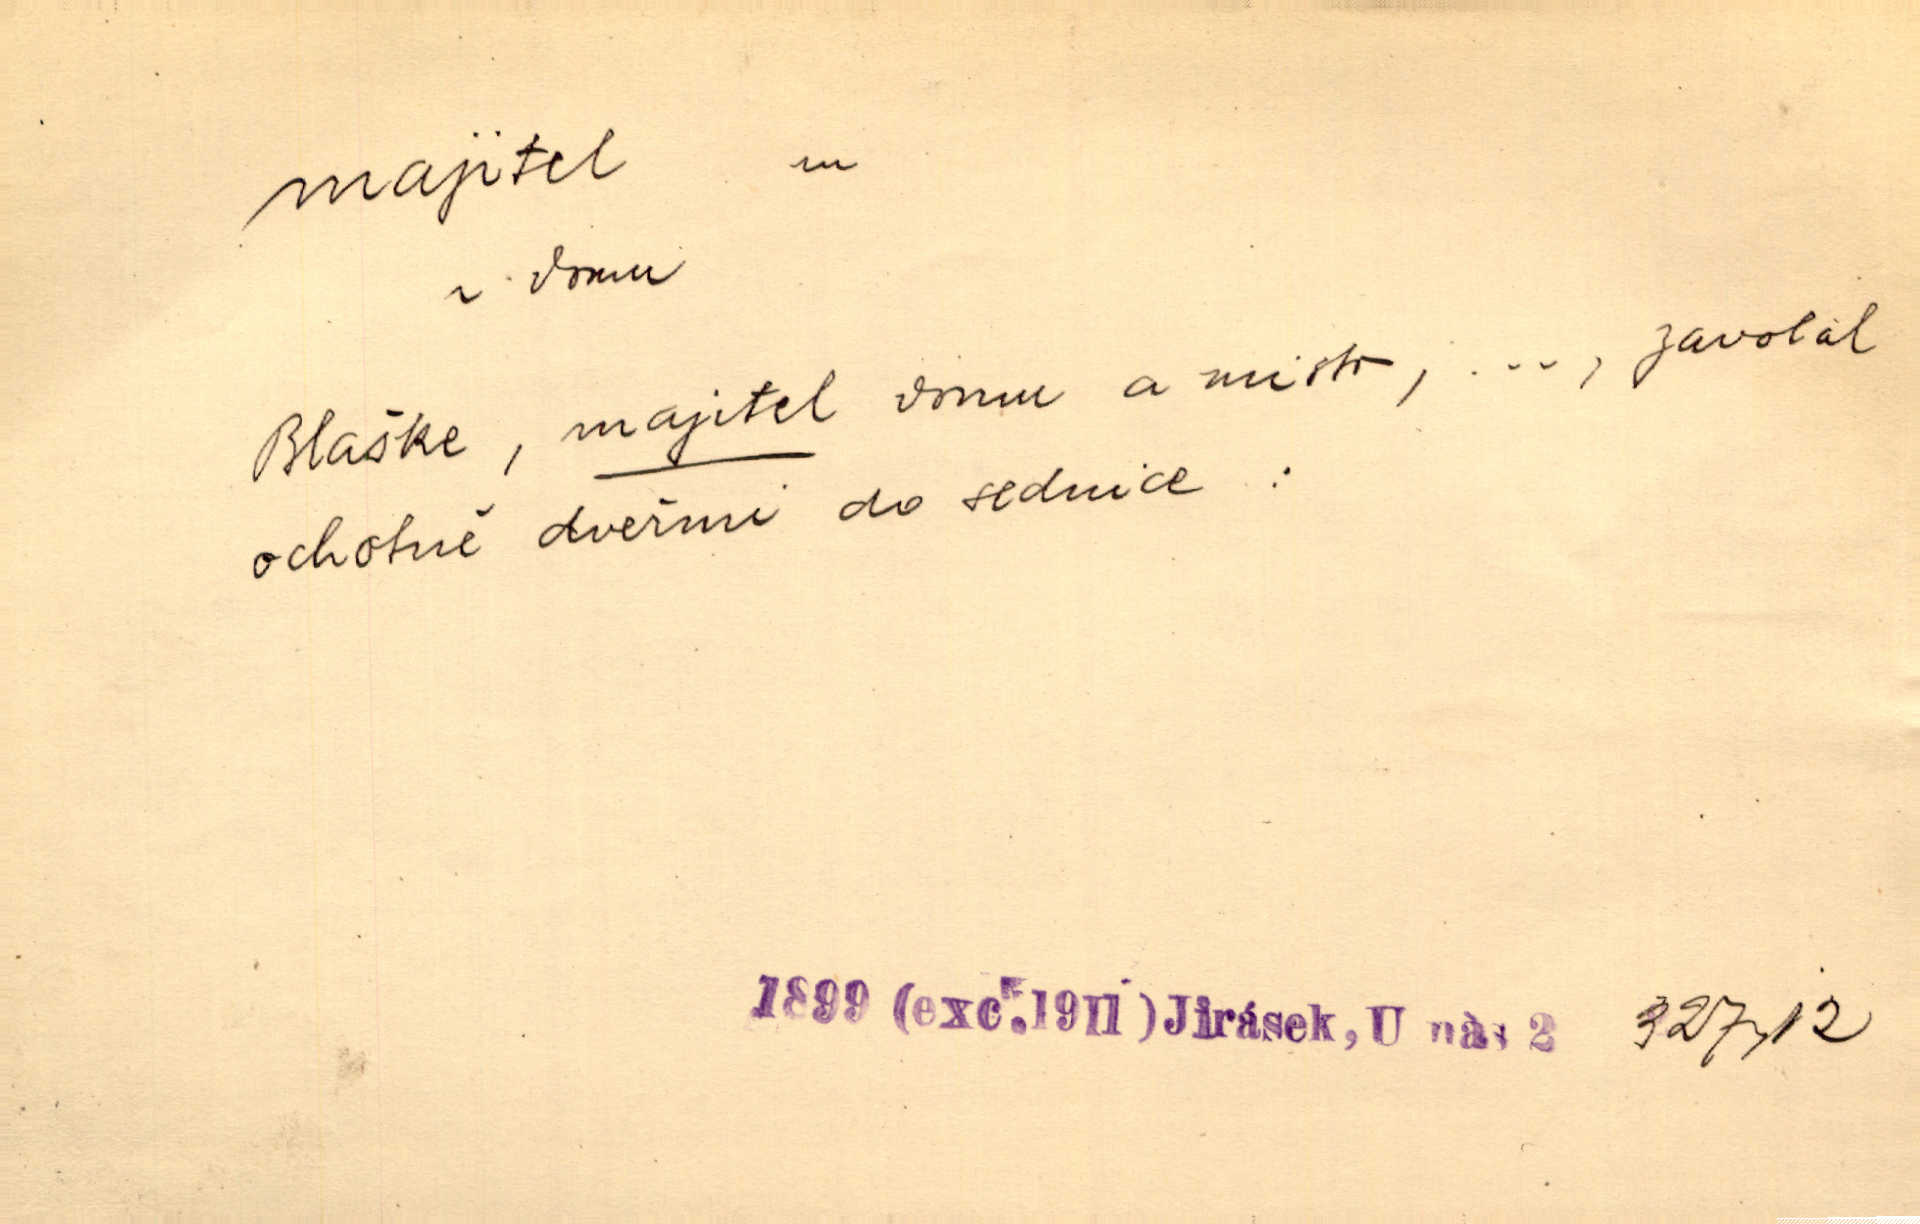 majitel m
~ domu
Blaške, majitel domu a mistr, ..., zavolal
ochotně dveřmi do sednice :
1899 (exc. 1911) Jirásek, U nás 2 327,12